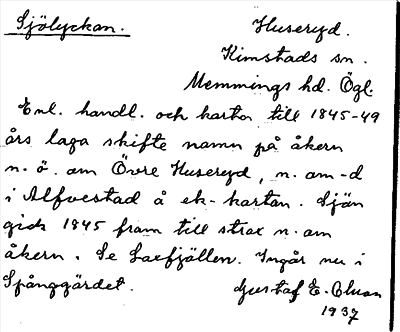 Sjölyckan.
Huseryd.
Kimstads sn.
Memmings hd. Ögl.
Enl. handl. och kartor till 1845-49
års laga skifte namn på åkern
n. ö. om Övre Huseryd, n. om -d
i Alfvestad å ek-kartan. Sjön
gick 1845 fram till strax n. om
åkern. Se Laxfjällen. Ingår nu i
Spånggärdet.
Gustaf E. Olsson
1937